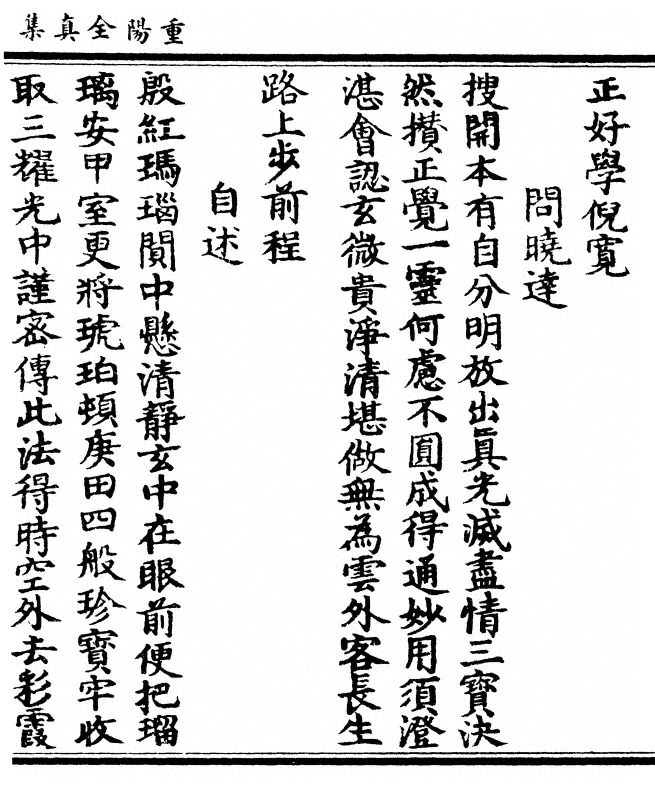 重陽全真集
正好學倪寬
問曉達
搜開本有自分明放出真光滅盡情三寶決
然攢正覺一靈何慮不圓成得通妙用須澄
湛會認玄微貴淨清堪做無為雲外客長生
路上步前程
自述
殷紅瑪瑙閴中懸清靜玄中在眼前便把瑠
璃安甲室更將琥珀頓庚田四般珍寶牢收
取三耀光中謹密傳此法得時空外去彩霞